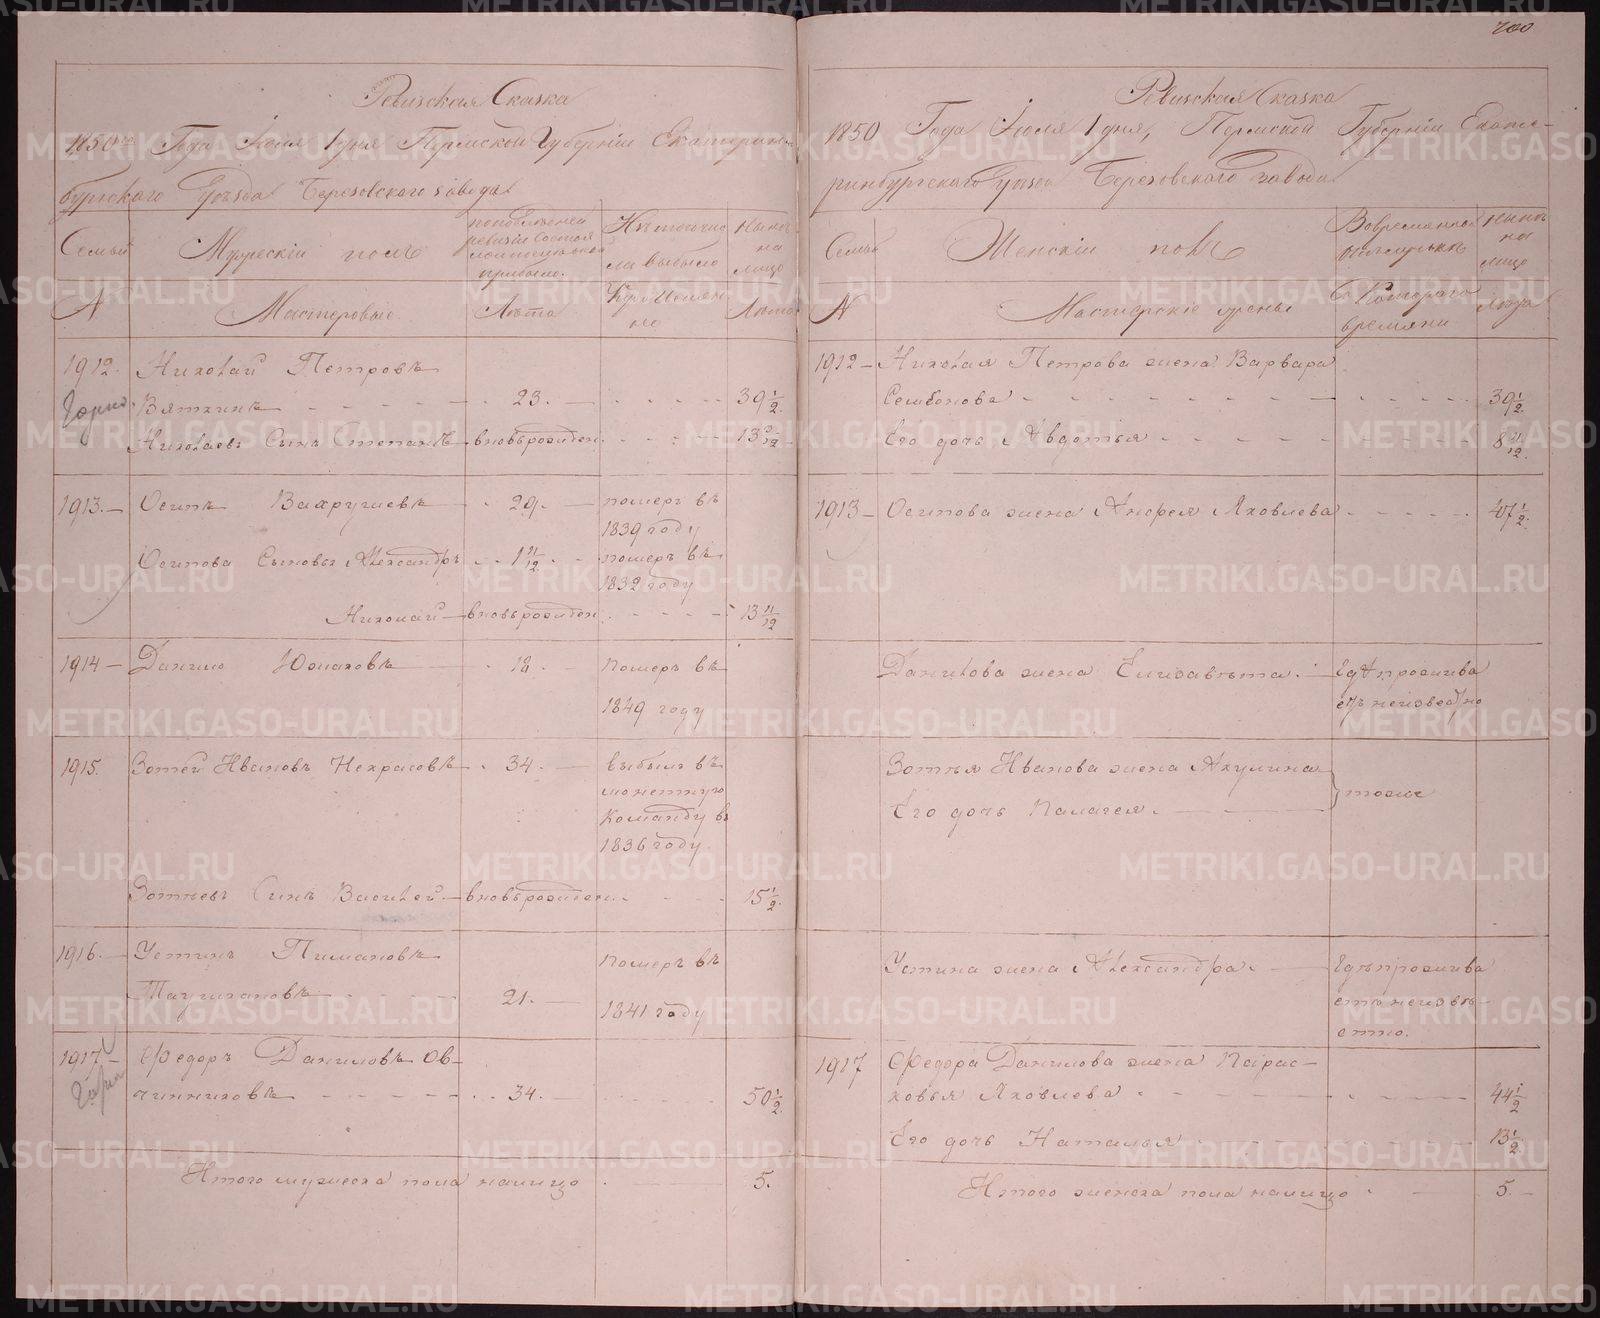 700
Ревизская Сказка
1850го Года Июля 1 дня Пермской Губерніи Екатерин-
бургскаго Уѣзда Березовского завода.
Семьи
Мужескій полъ
по последней
ревизіи состоя
прибыло.
Изъ того чис
ла выбыло
Нынѣ
на
лицо
№
Мастеровые.
Лѣта
Лѣта
1912.
Николай Петровъ
Горно.
Вяткинъ - - - - - 23. - - - - - 39 1/2.
Николаевъ Сынъ Степанъ - вновьрожден. - - - - 13 2/12.
1913. - Осипъ Вахрушевъ - 29. - померъ въ
1839 году
Осипова Сыновья Александръ - - 1 11/12. - - померъ въ
1832 году
Николай - вновьрожден. - - - - - 13 11/12
1914 - Данило Юшковъ - 18. - померъ въ
1849 году
1915. Зотей Ивановъ Некрасовъ - 34. - выбылъ въ
монетную
Команду въ
1836 году.
Зотѣевъ Сынъ Василей - вновьрожден. - - - 15 1/2.
1916. - Устинъ Пимановъ
померъ въ
21. -
1841 году
1917 - Федоръ Даниловъ Ов-
Горно
чинниковъ - - - - - 34. - - - - - 50 1/2.
Итого мужеска пола налицо - 5.
Ревизская Сказка
1850 Года Июля 1 дня, Пермской Губерніи Екате-
ринбургскаго Уѣзда Березовского завода.
Семьи
Женскій полъ
Вовременной
отлучкѣ
Нынѣ
на
лицо
№
Мастерскіе жены
Съ Котораго
времяни
Лѣта
1912 - Николая Петрова жена Варвара
Семенова - - - - - 39 1/2.
Его дочь Авдотья - - - - - 8 11/12.
1913 - Осипова жена Анфея Яковлева - - - - - 47 1/2.
Данилова жена Елизавѣта. - Гдѣ прожива
етъ неизвестно
Зотея Иванова жена Акулина
} тоже
Его дочь Палагея. -
Устина жена Александра. - Гдѣ прожива
етъ неизвѣ-
стно.
1917 Федора Данилова жена Парас-
ковья Яковлева - - - - - 44 1/2
Его дочь Наталья - - - - - 13 1/2.
Итого женска пола налицо. - 5. -
METRIKI.GASO-URAL.RU